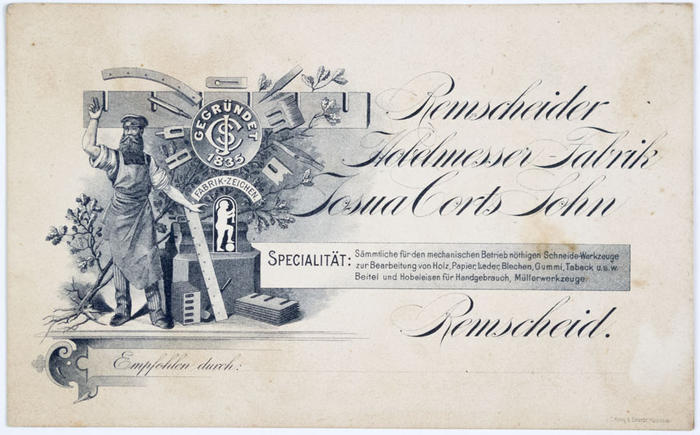 GEGRÜNDET
JCS
1835
FABRIK-ZEICHEN
Remscheider
Hobelmesser-Fabrik
Josua Corts Sohn
SPECIALITÄT:
Sämmtliche für den mechanischen Betrieb nöthigen Schneide-Werkzeuge
zur Bearbeitung von Holz, Papier, Leder, Blechen, Gummi, Taback u.s.w.
Beitel und Hobeleisen für Handgebrauch, Müllerwerkzeuge.
Remscheid.
Empfohlen durch: